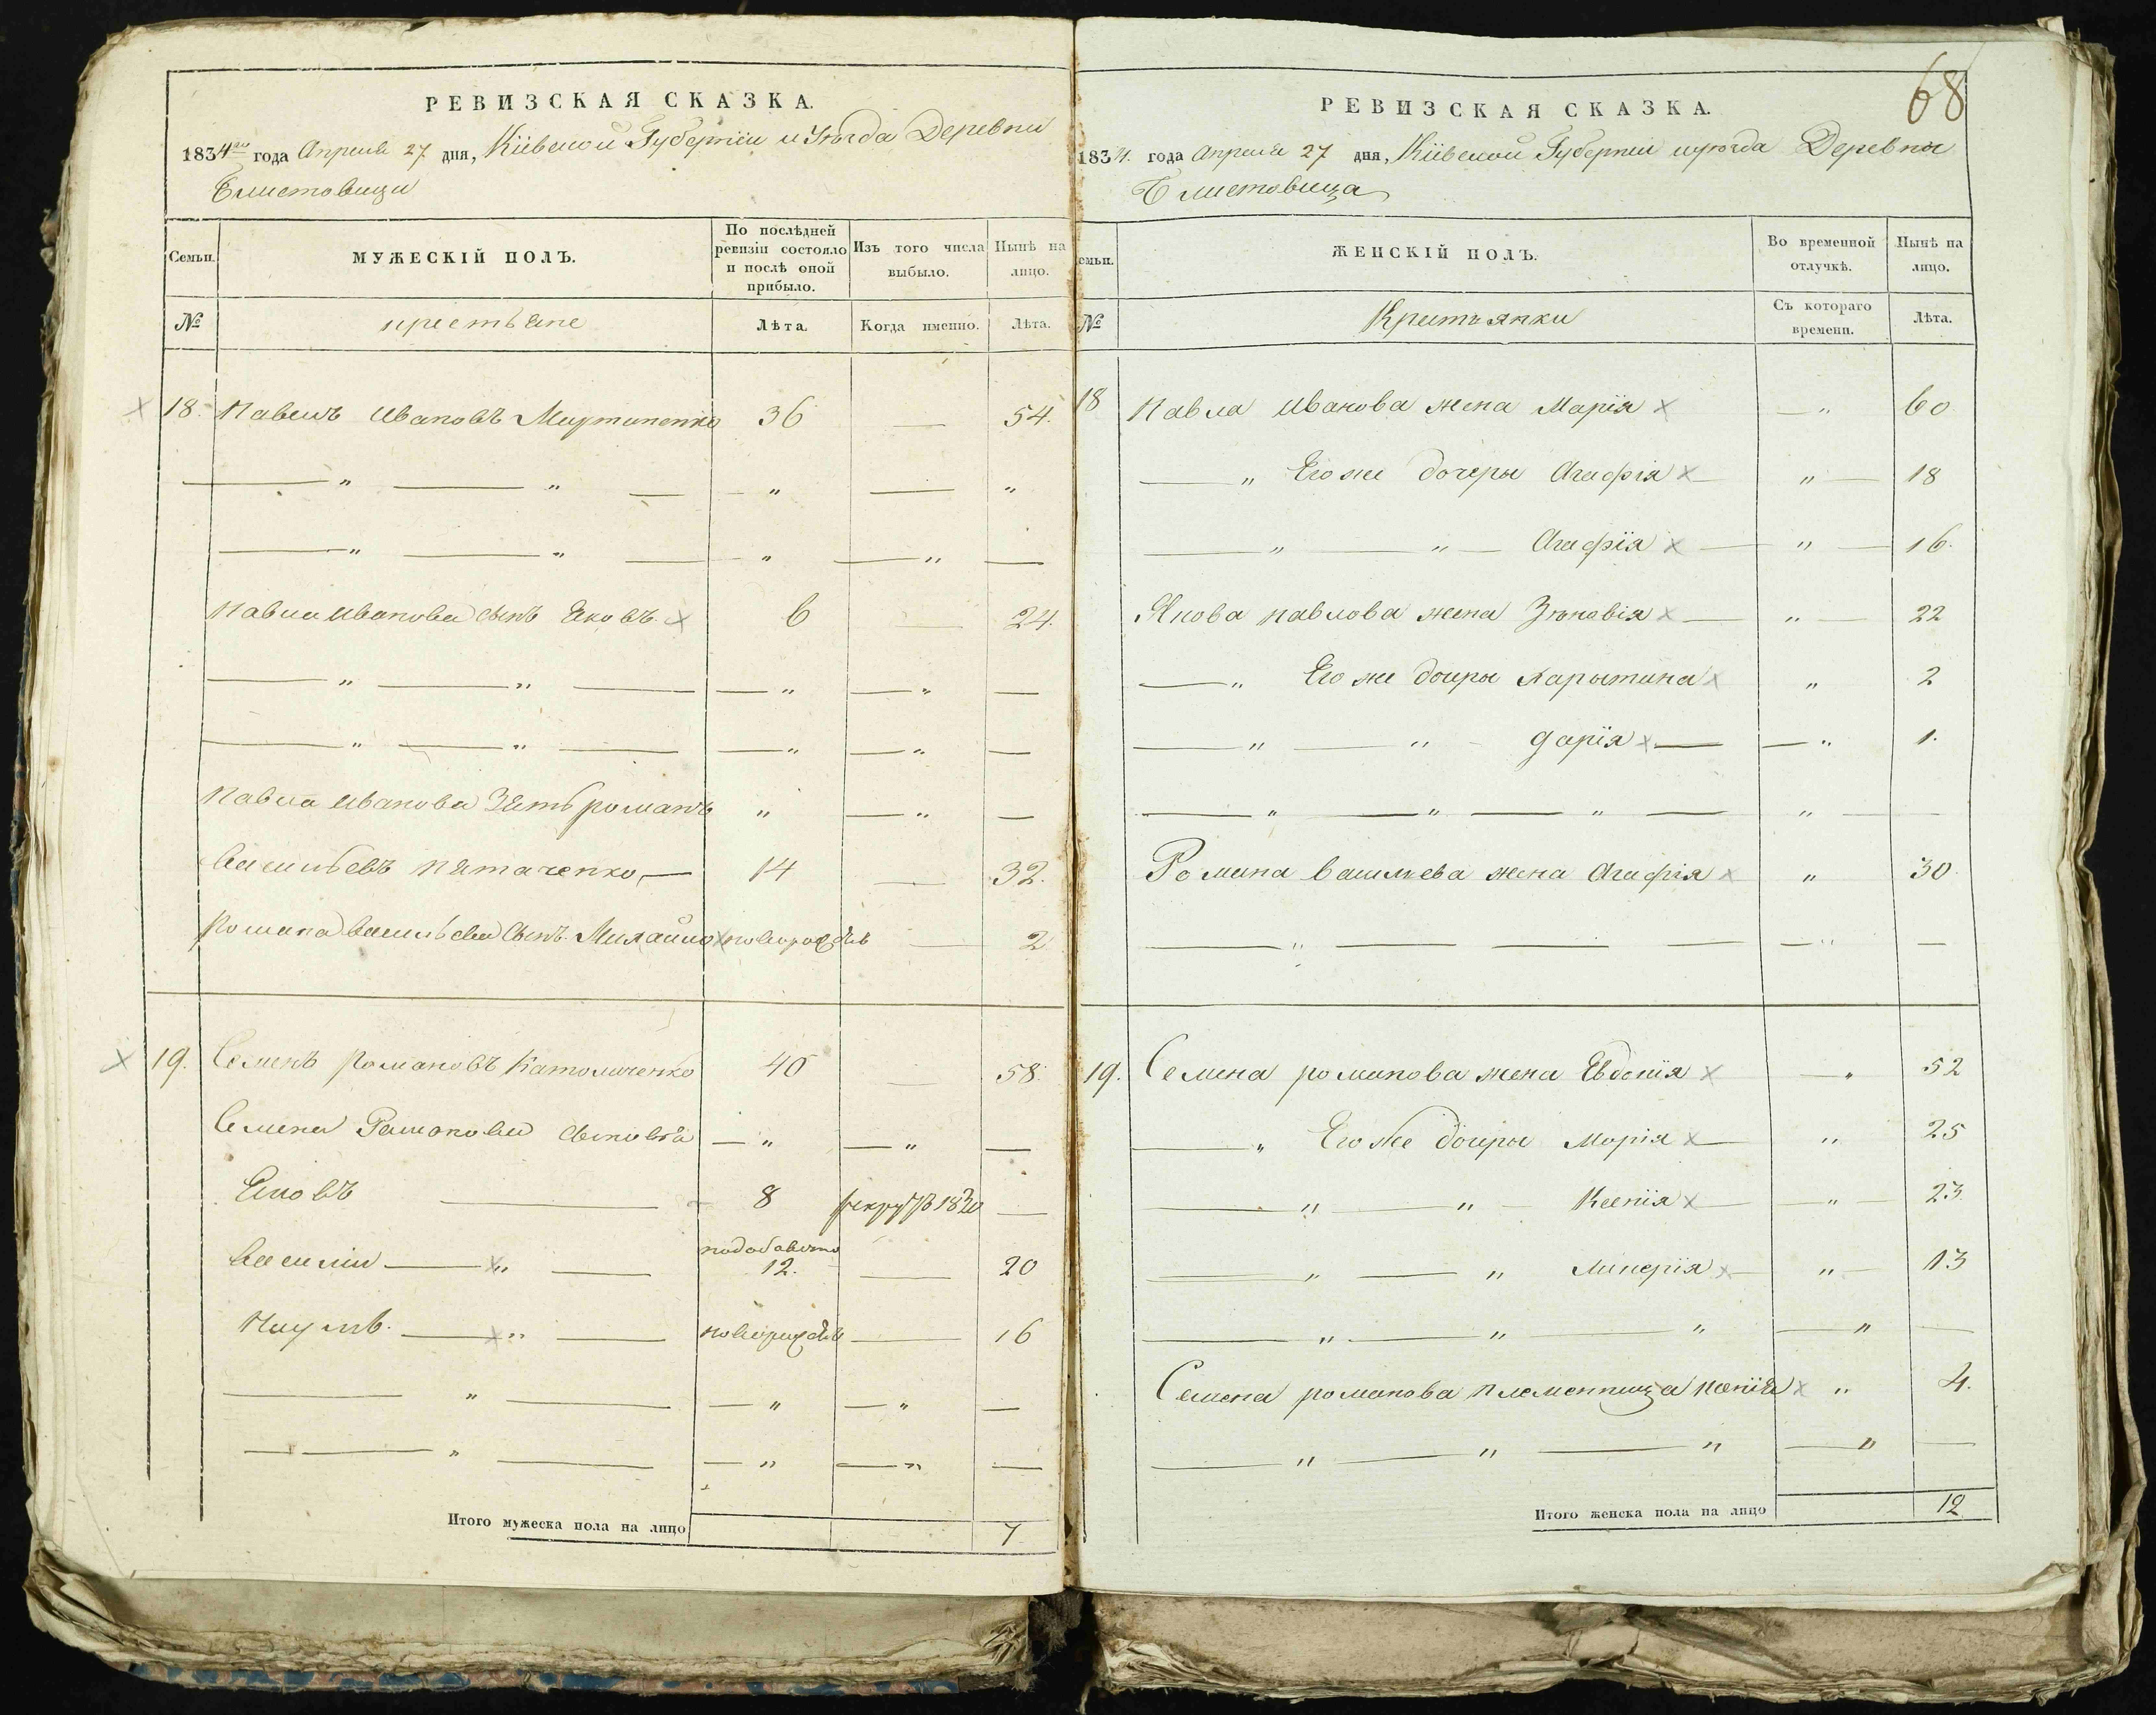 РЕВИЗСКАЯ СКАЗКА.
1834го года Апреля 27 дня, Кіівской Губерніи и Уѣзда Деревни
Блиставици
Семьи.
МУЖЕСКІЙ ПОЛЪ.
По послѣдней ревизіи состояло и послѣ оной прибыло.
Изъ того числа выбыло.
Нынѣ на лицо.
№
крестьяне
Лѣта
Когда именно.
Лѣта.
18. Павелъ Ивановъ 36 — 54.
Павла Иванова сынъ Яковъ 6 — 24.
Павла Иванова Зять романъ
Васильевъ 14 — 32.
Романа Васильева сынъ Михайло новорожден — 2
19. Семенъ романовъ 40 58.
Семена Романова сыновья
Яковъ 8 рекрут в 1830
Василій — 12. — 20
Наумъ. — новорожден — 16
Итого мужеска пола на лицо 7
68
РЕВИЗСКАЯ СКАЗКА.
1834. года Апреля 27 дня, Кіівской Губерніи и уѣзда Деревни
Блиставица
семьи.
ЖЕНСКІЙ ПОЛЪ.
Во временной отлучкѣ.
Нынѣ на лицо.
№
Съ котораго времени.
Лѣта.
18 Павла Иванова жена Марія 60
Его же дочеры Агафія 18
Агафія 16.
Якова павлова жена Зѣновія 22
Его же дочры 2
дарія 1.
Романа васильева жена Агафія 30
19. Семена романова жена Евдокія 52
Его же дочры Марія 25
Ксенія 23.
13
Семена романова племенница 4.
Итого женска пола на лицо 12